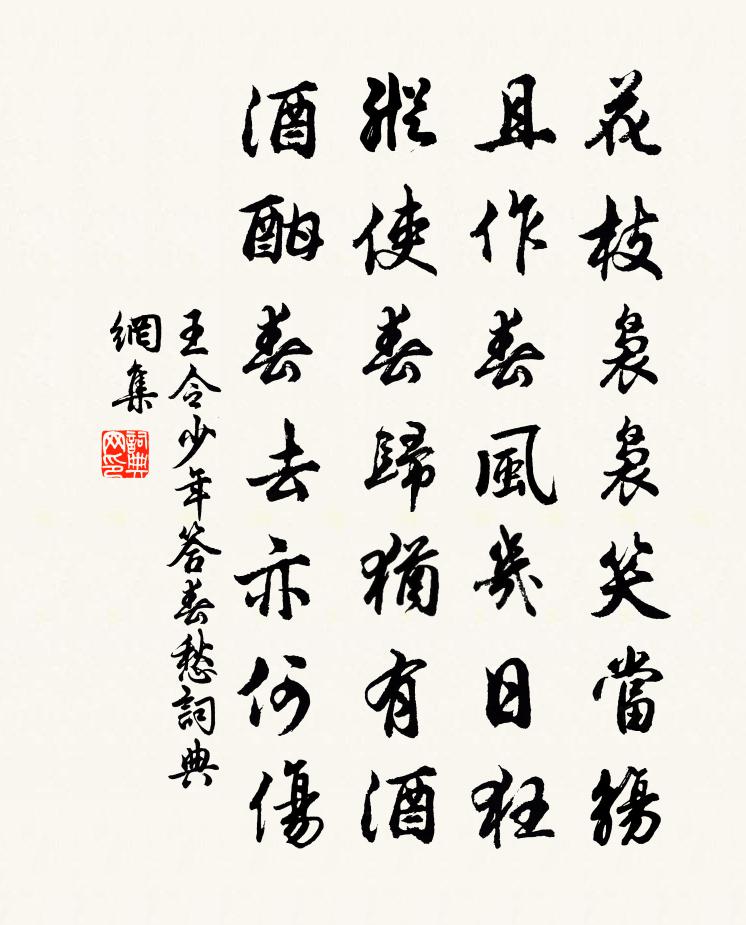 花枝裊裊笑當觴
且作春風幾日狂
縱使春歸猶有酒
酒酣春去亦何傷
王令少年答春愁詞典
網集
詞典
网印